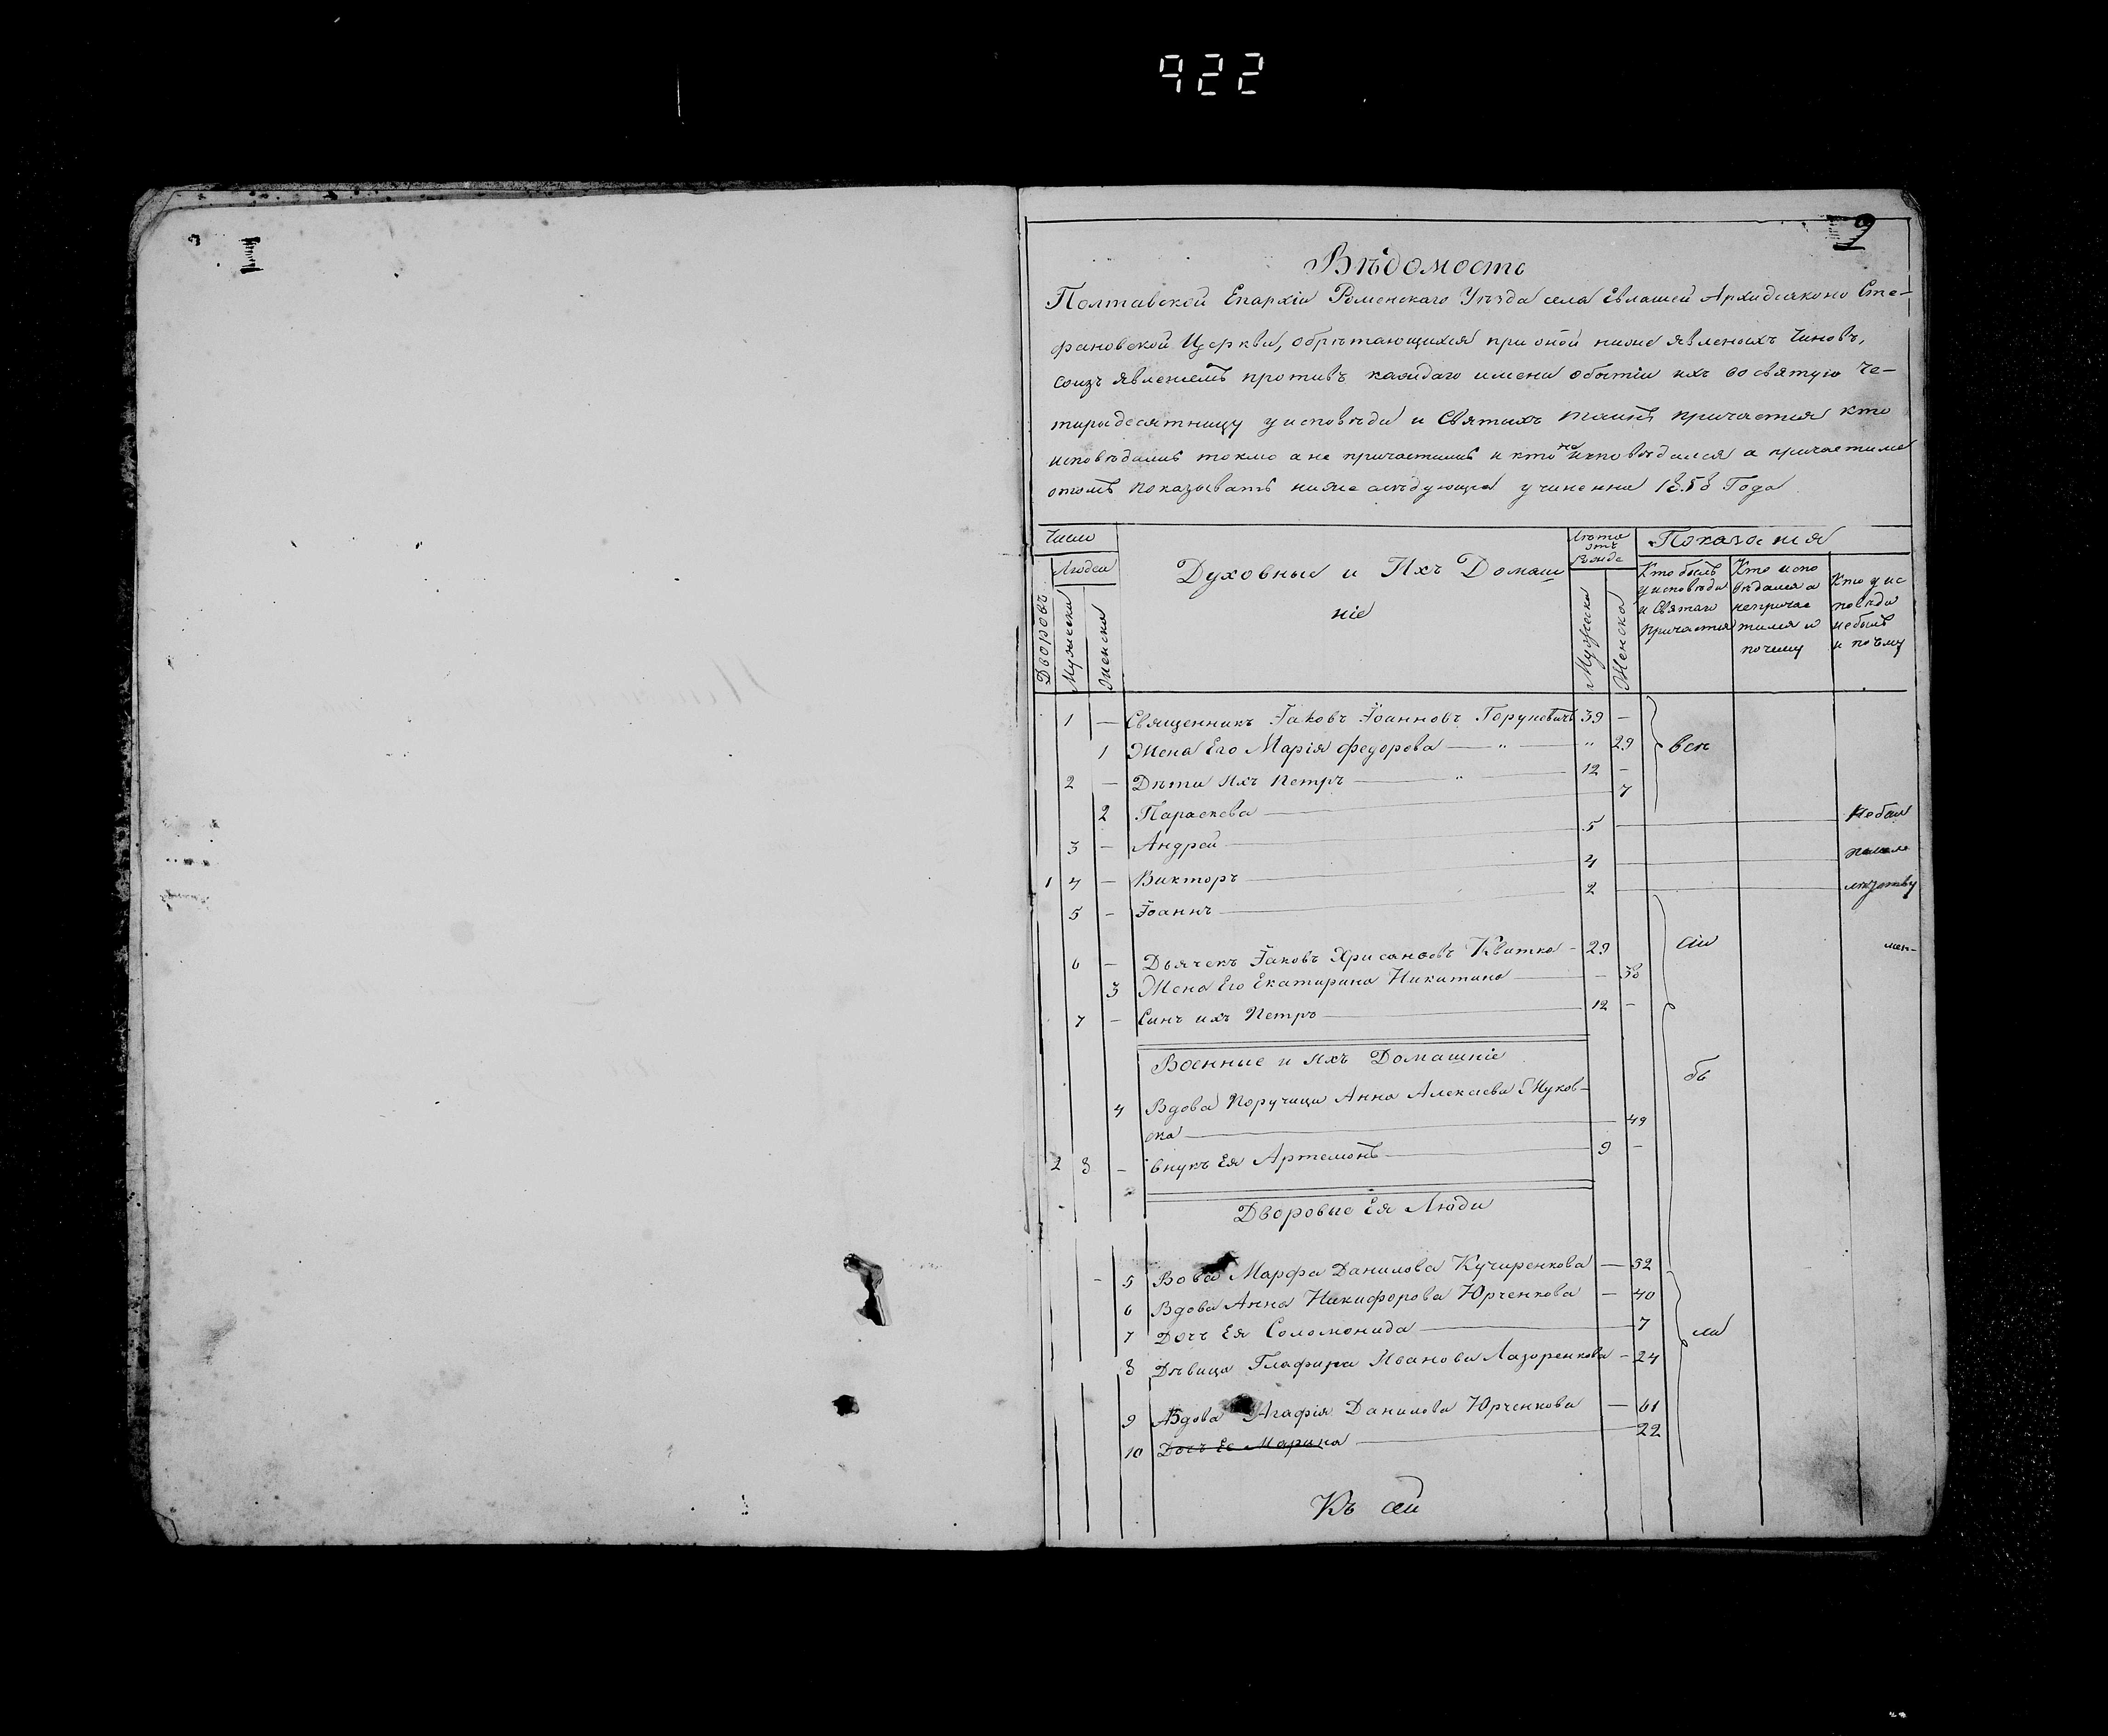 922
2
Вѣдомость
Полтавской Епархіи Роменскаго Уѣзда села Евлашей Архидіаконо Сте-
фановской Церкви, обрѣтающихся при оной ниже явленныхъ Чиновъ,
соизъявленіемъ противъ каждаго имени о бытіи ихъ во святую Че-
тыредесятницу у исповѣди и Святыхъ Таинъ причастія кто
исповѣдались токмо а не причастились и кто не исповѣдался а причастился
о томъ показывать ниже слѣдующая учиненна 1858 Года
Число
Дворовъ
Людей
Мужеска
Женска
Духовныя и Ихъ Домаш
ніе
Лѣта отъ Рожде
Мужеска
Женска
Показанія
Кто былъ у исповѣди и Святаго причастія
Кто испо вѣдался а непричас тился и почему
Кто у ис повѣди небылъ и почему
1 — Священникъ Іаковъ Іоанновъ 39 —
1 Жена Его Марія Федорова — " — " 29 всѣ
2 — Дѣти Ихъ Петръ — " — 12 —
2 Параскева — 7
3 — Андрей — 5 — небыл
1 4 — Викторъ — 4
5 — Іоаннъ — 2
6 — Дьячекъ Іаковъ Хрисанѳовъ Квитка — 29 сіи
3 Жена Его Екатирина Никитина — — 38
7 — Сынъ ихъ Петръ — 12 —
Военные и Ихъ Домашніе
бы
4 Вдова Поручица Анна Алексѣева Жуков-
ска — 49
2 8 — внукъ Ея Артемонъ — 9 —
Дворовые Ея Люди
— 5 Вова Марфа Данилова Кучиренкова — 52
6 Вдова Анна Никифорова Юрченкова — 40
7 Дочь Ея Соломонида — 7 ли
8 Дѣвица Глафира Иванова Лазоренкова — 24
9 Вдова Агафія Данилова Юрченкова — 61
10 Дочь Ея Марина — 22
Къ сей